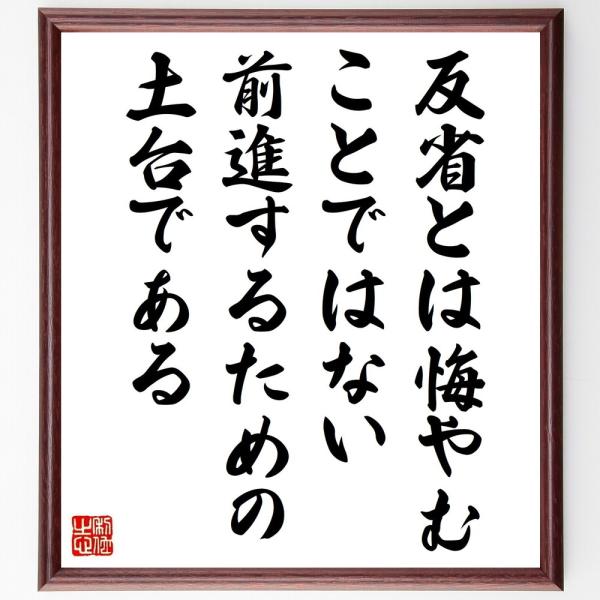 反省とは悔やむ
ことではない
前進するための
土台である